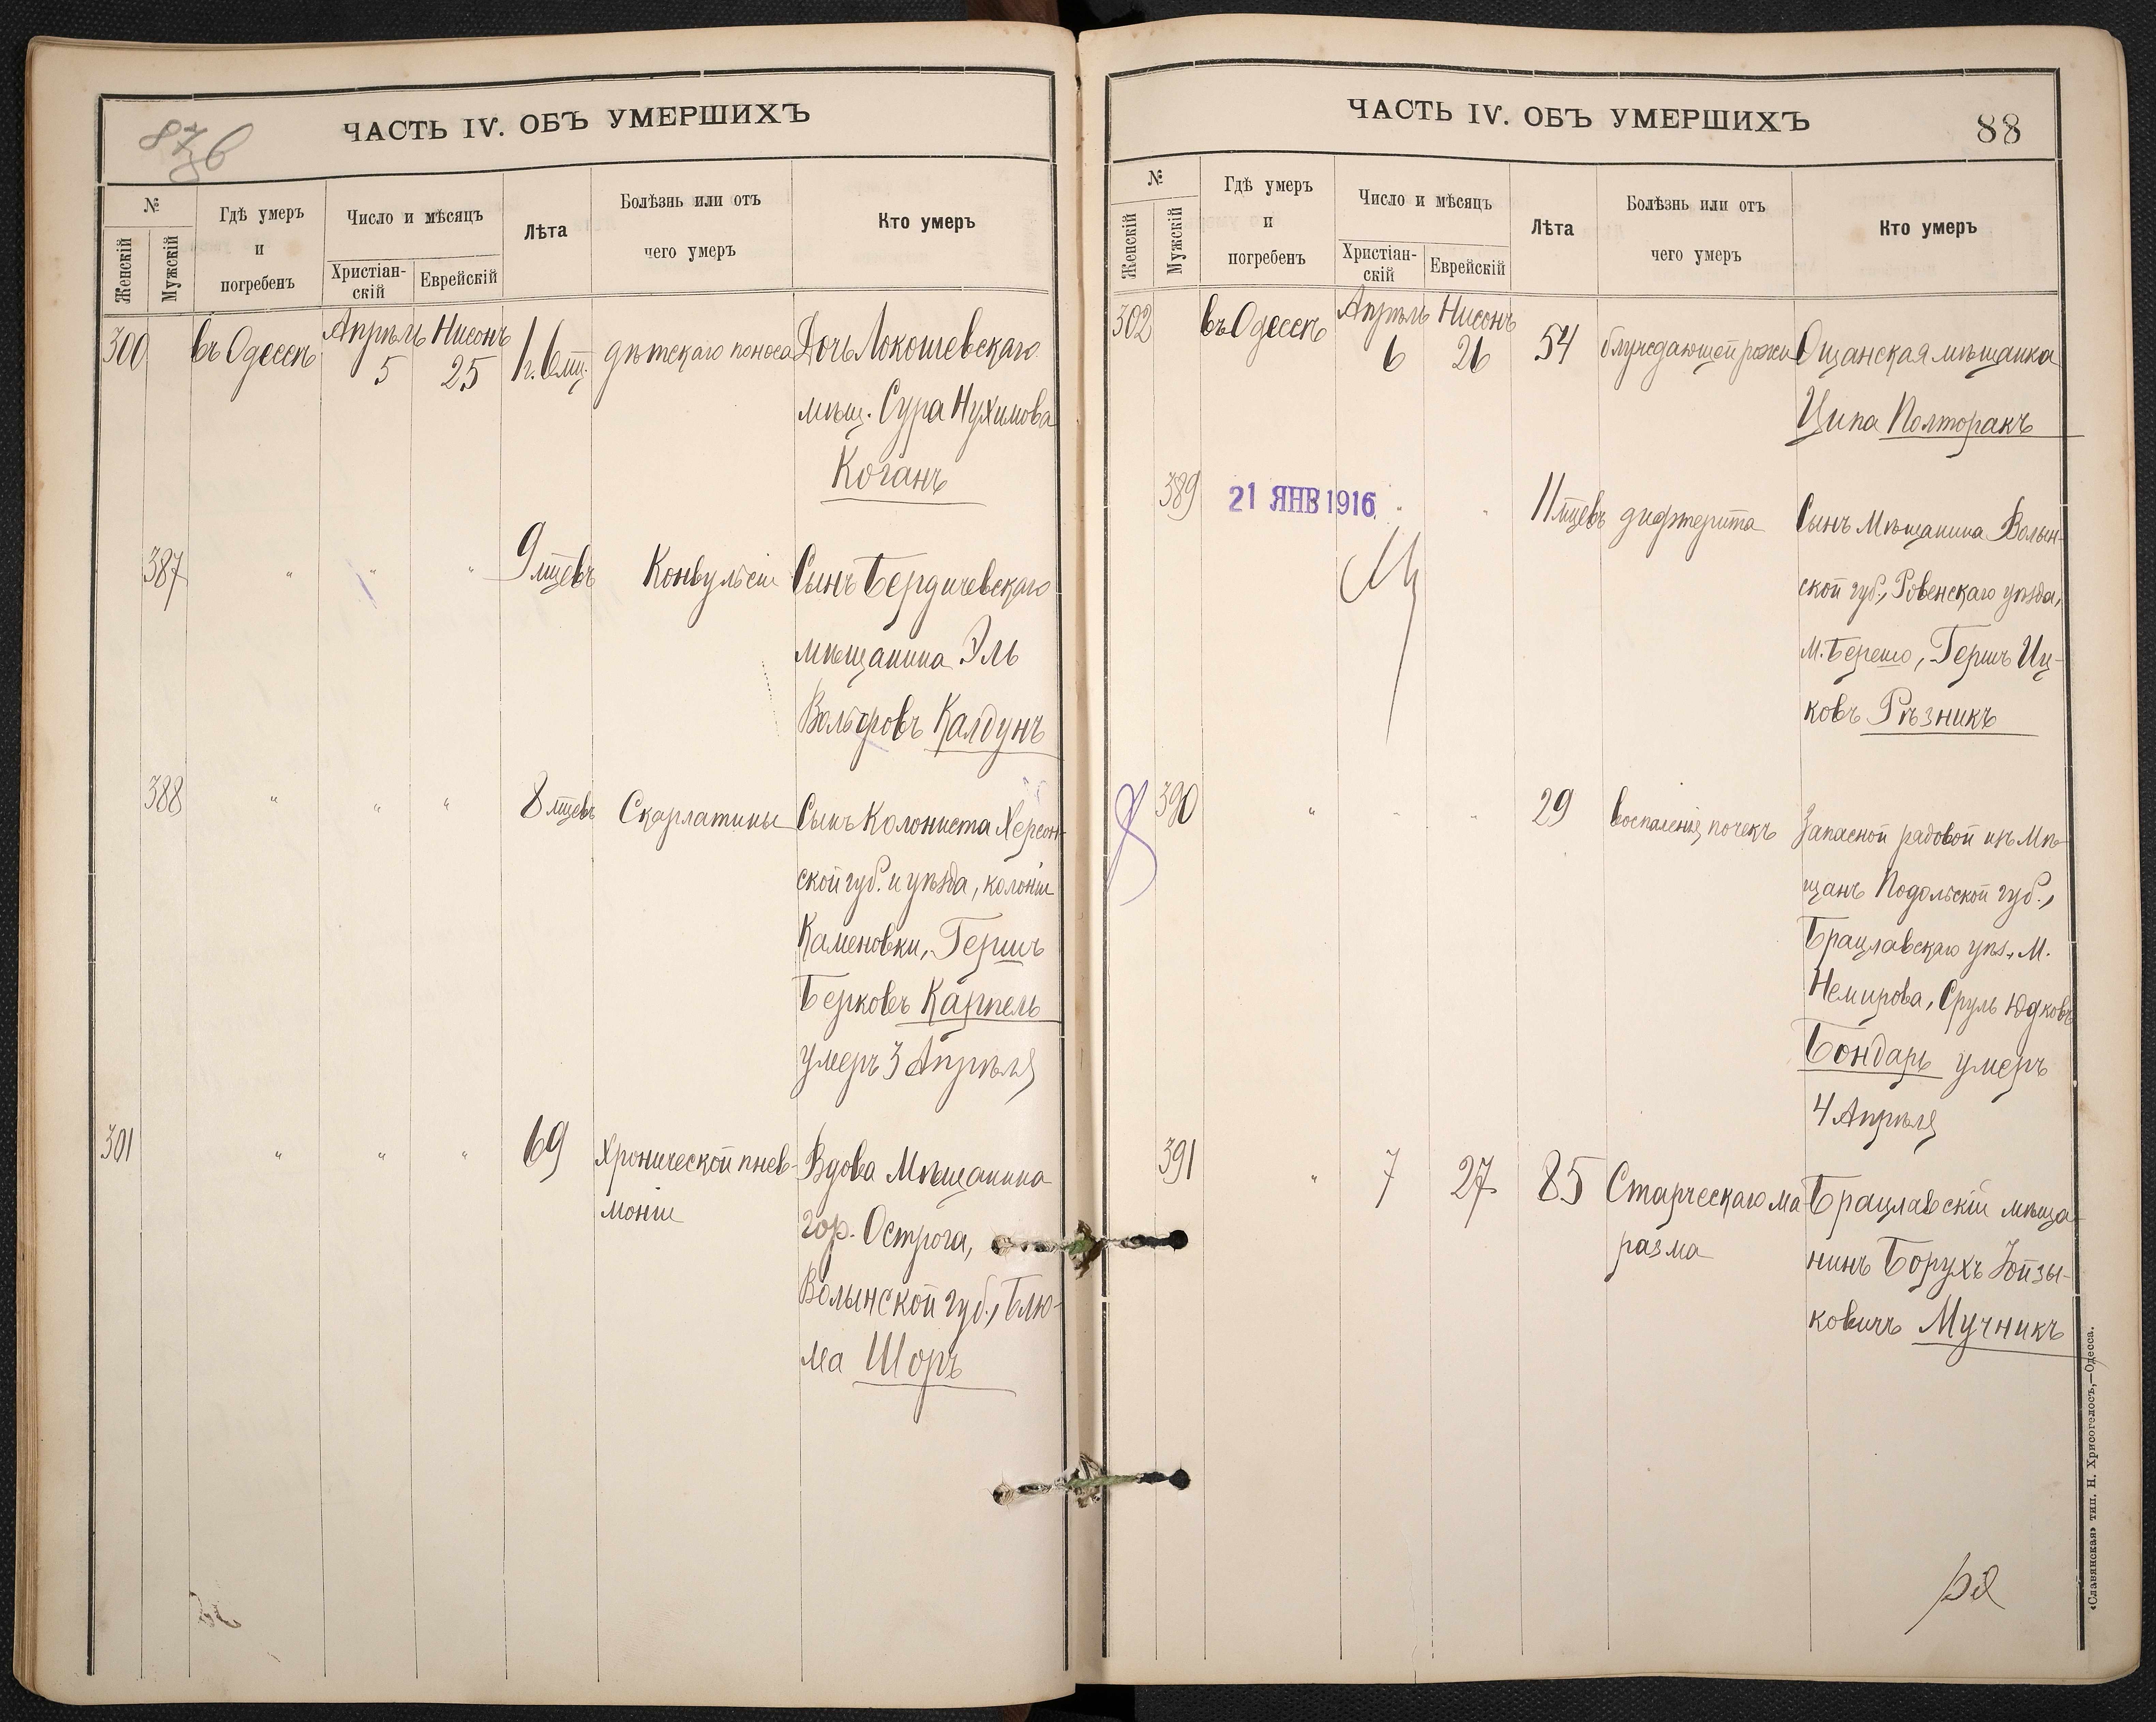 87 в
ЧАСТЬ IV. ОБЪ УМЕРШИХЪ
№
Женскій
Мужскій
Гдѣ умеръ
и
погребенъ
Число и мѣсяцъ
Христіан-
скій
Еврейскій
Лѣта
Болѣзнь или отъ
чего умеръ
Кто умеръ
300 въ Одессѣ Апрѣль 5 Нисонъ 25 1 г. 6 мц. дѣтскаго поноса Дочь Локошевскаго
мѣщ. Сура Нухимова
Коганъ
387 " " " 9 мцевъ Конвульсіи Сынъ Бердичевскаго
мѣщанина Эль
Вольфовъ Калдунъ
388 " " " 8 мцевъ Скарлатины Сынъ Колониста Херсон-
ской губ. и уѣзда, колоніи
Каменовки, Гершъ
Берковъ Карпель
умеръ 3 Апрѣля
301 " " " 69 Хронической пнев- Вдова Мѣщанина
моніи
гор. Острога,
Волынской губ., Блю-
ма Шоръ
ЧАСТЬ IV. ОБЪ УМЕРШИХЪ
88
№
Женскій
Мужскій
Гдѣ умеръ
и
погребенъ
Число и мѣсяцъ
Христіан-
скій
Еврейскій
Лѣта
Болѣзнь или отъ
чего умеръ
Кто умеръ
302 въ Одессѣ Апрѣль 6 Нисонъ 26 54 блуждающей рожи Ощанская мѣщанка
Ципа Полторакъ
389 21 ЯНВ 1916 " " 11 мцевъ дифтерита Сынъ Мѣщанина Волын-
ской губ., Ровенскаго уѣзда,
М. Березно, Гершъ Иц-
ковъ Рѣзникъ
390 " " " 29 воспаленія почекъ Запасной рядовой изъ Мѣ-
щанъ Подольской губ.,
Брацлавскаго уѣз., М.
Немирова, Сруль Юдковъ
Бондарь умеръ
4 Апрѣля
391 " 7 27 85 Старческаго ма- Брацлавскій мѣща-
разма
нинъ Борухъ Іойзы-
ковичъ Мучникъ
«Славянская» тип. Н. Хрисогелосъ,—Одесса.